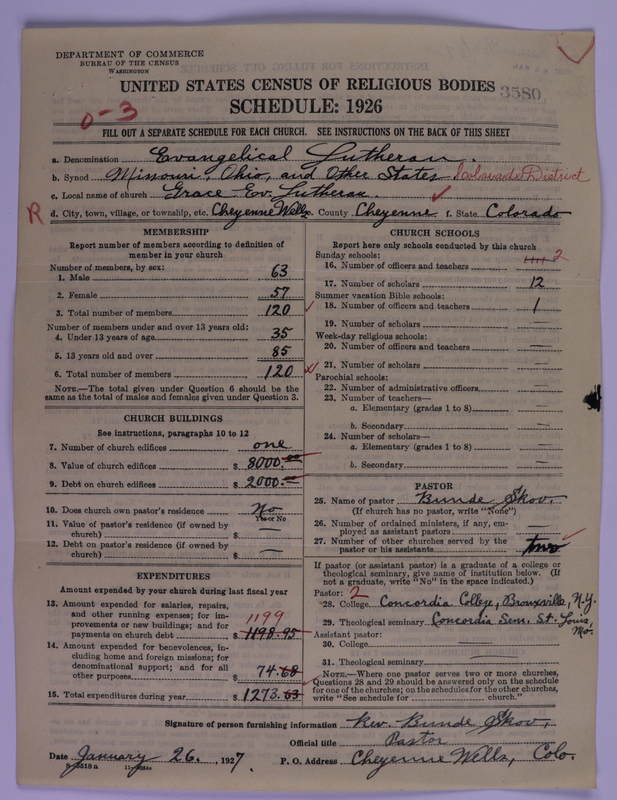 DEPARTMENT OF COMMERCE
BUREAU OF THE CENSUS
WASHINGTON
UNITED STATES CENSUS OF RELIGIOUS BODIES
3580
SCHEDULE: 1926
0-3
FILL OUT A SEPARATE SCHEDULE FOR EACH CHURCH. SEE INSTRUCTIONS ON THE BACK OF THIS SHEET
a. Denomination Evangelical Lutheran.
b. Synod Missouri, Ohio, and Other States Colorado District
c. Local name of church Grace Ev. Lutheran.
R d. City, town, village, or township, etc. Cheyenne Wells e. County Cheyenne f. State Colorado
MEMBERSHIP
Report number of members according to definition of
member in your church
Number of members, by sex:
1. Male 63
2. Female 57
3. Total number of members 120
Number of members under and over 13 years old:
4. Under 13 years of age 35
5. 13 years old and over 85
6. Total number of members 120
NOTE.—The total given under Question 6 should be the
same as the total of males and females given under Question 3.
CHURCH BUILDINGS
See instructions, paragraphs 10 to 12
7. Number of church edifices one
8. Value of church edifices $ 8000.00
9. Debt on church edifices $ 2000.00
10. Does church own pastor's residence No
Yes or No
11. Value of pastor's residence (if owned by
church) $ —
12. Debt on pastor's residence (if owned by
church) $ —
EXPENDITURES
Amount expended by your church during last fiscal year
13. Amount expended for salaries, repairs,
and other running expenses; for im-
provements or new buildings; and for
payments on church debt $ 1198.95
1199
14. Amount expended for benevolences, in-
cluding home and foreign missions; for
denominational support; and for all
other purposes $ 74.68
15. Total expenditures during year $ 1273.63
CHURCH SCHOOLS
Report here only schools conducted by this church
Sunday schools:
16. Number of officers and teachers 2
17. Number of scholars 12
Summer vacation Bible schools:
18. Number of officers and teachers 1
19. Number of scholars —
Week-day religious schools:
20. Number of officers and teachers —
21. Number of scholars —
Parochial schools:
22. Number of administrative officers —
23. Number of teachers—
a. Elementary (grades 1 to 8) —
b. Secondary —
24. Number of scholars—
a. Elementary (grades 1 to 8) —
b. Secondary —
PASTOR
25. Name of pastor Bunde Skov.
(If church has no pastor, write "None")
26. Number of ordained ministers, if any, em-
ployed as assistant pastors —
27. Number of other churches served by the
pastor or his assistants two
If pastor (or assistant pastor) is a graduate of a college or
theological seminary, give name of institution below. (If
not a graduate, write "No" in the space indicated.)
Pastor: 2
28. College Concordia College, Bronxville, N.Y.
29. Theological seminary Concordia Sem. St. Louis, Mo.
Assistant pastor:
30. College —
31. Theological seminary —
NOTE.—Where one pastor serves two or more churches,
Questions 28 and 29 should be answered only on the schedule
for one of the churches; on the schedules for the other churches,
write "See schedule for church."
Signature of person furnishing information Rev. Bunde Skov,
Official title Pastor
Date January 26., 1927. P. O. Address Cheyenne Wells, Colo.